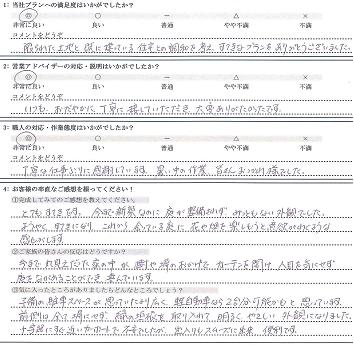 1: 当社プランへの満足度はいかがでしたか？
◎ ○ － △ ×
非常に良い 良い 普通 やや不満 不満
コメントをどうぞ
限られた土地と既に建っている住宅との調和を考え、すてきなプランをありがとうございました。
2: 営業アドバイザーの対応・説明はいかがでしたか？
◎ ○ － △ ×
非常に良い 良い 普通 やや不満 不満
コメントをどうぞ
いつも、おだやかに、丁寧に接していただき、大変ありがたかったです。
3: 職人の対応・作業態度はいかがでしたか？
◎ ○ － △ ×
非常に良い 良い 普通 やや不満 不満
コメントをどうぞ
丁寧な仕事ぶりに感謝しています。暑い中の作業、皆さんおつかれ様でした。
4: お客様の率直なご感想を綴ってください！
①完成してみてのご感想を教えてください。
とてもすてきです。今まで新築なのに庭が整備されず、みっともない外観でした。
ようやくすてきになり、これから
花や緑を楽しもうと意欲がわくような
感じがします。
②ご家族の皆さんの反応はどうですか？
今まで丸見えだった家の中が、塀や
のおかげで、カーテンを開け、人目を気にせず
過ごせることができ、喜んでいます。
③気に入ったところがありましたらどんなところでしょう？
2台分可能かもと思っています。
明るく、やさしい外観になりました。
出入りもスムーズに出来、便利です。